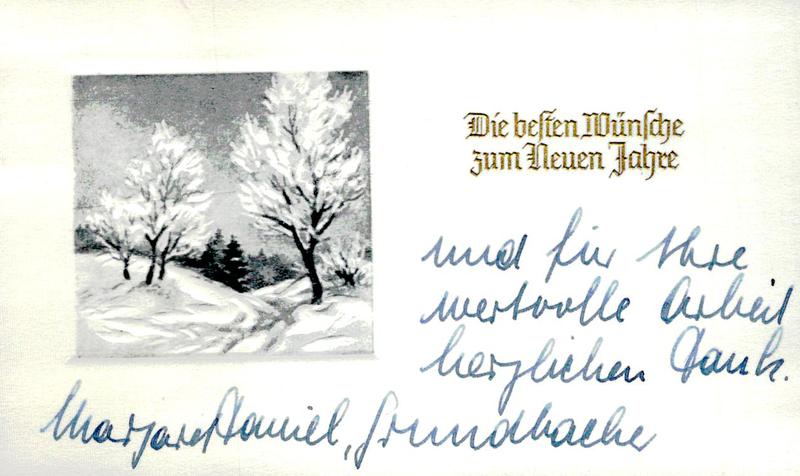 Die besten Wünsche
zum Neuen Jahre
und für Ihre
wertvolle Arbeit
herzlichen Dank.
Daniel, Grundbacher